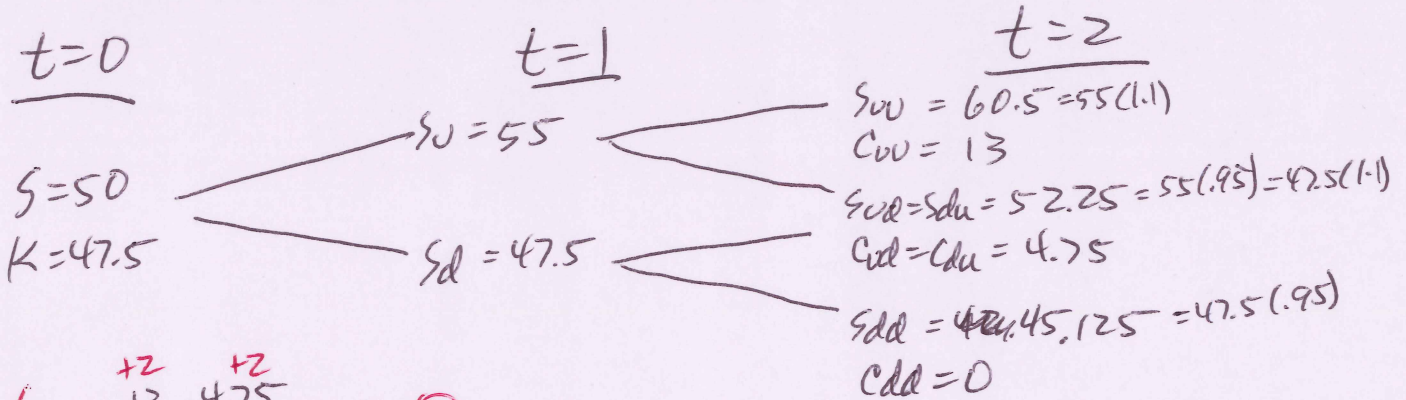 t=0
t=1
t=2
S=50
K=47.5
Su=55
Sd=47.5
Suu = 60.5=55(1.1)
Cuu = 13
Sud=Sdu=52.25=55(.95)=47.5(1.1)
Cud=Cdu=4.75
Sdd = 45.125=47.5(.95)
Cdd=0
+2 +2
13 4.75